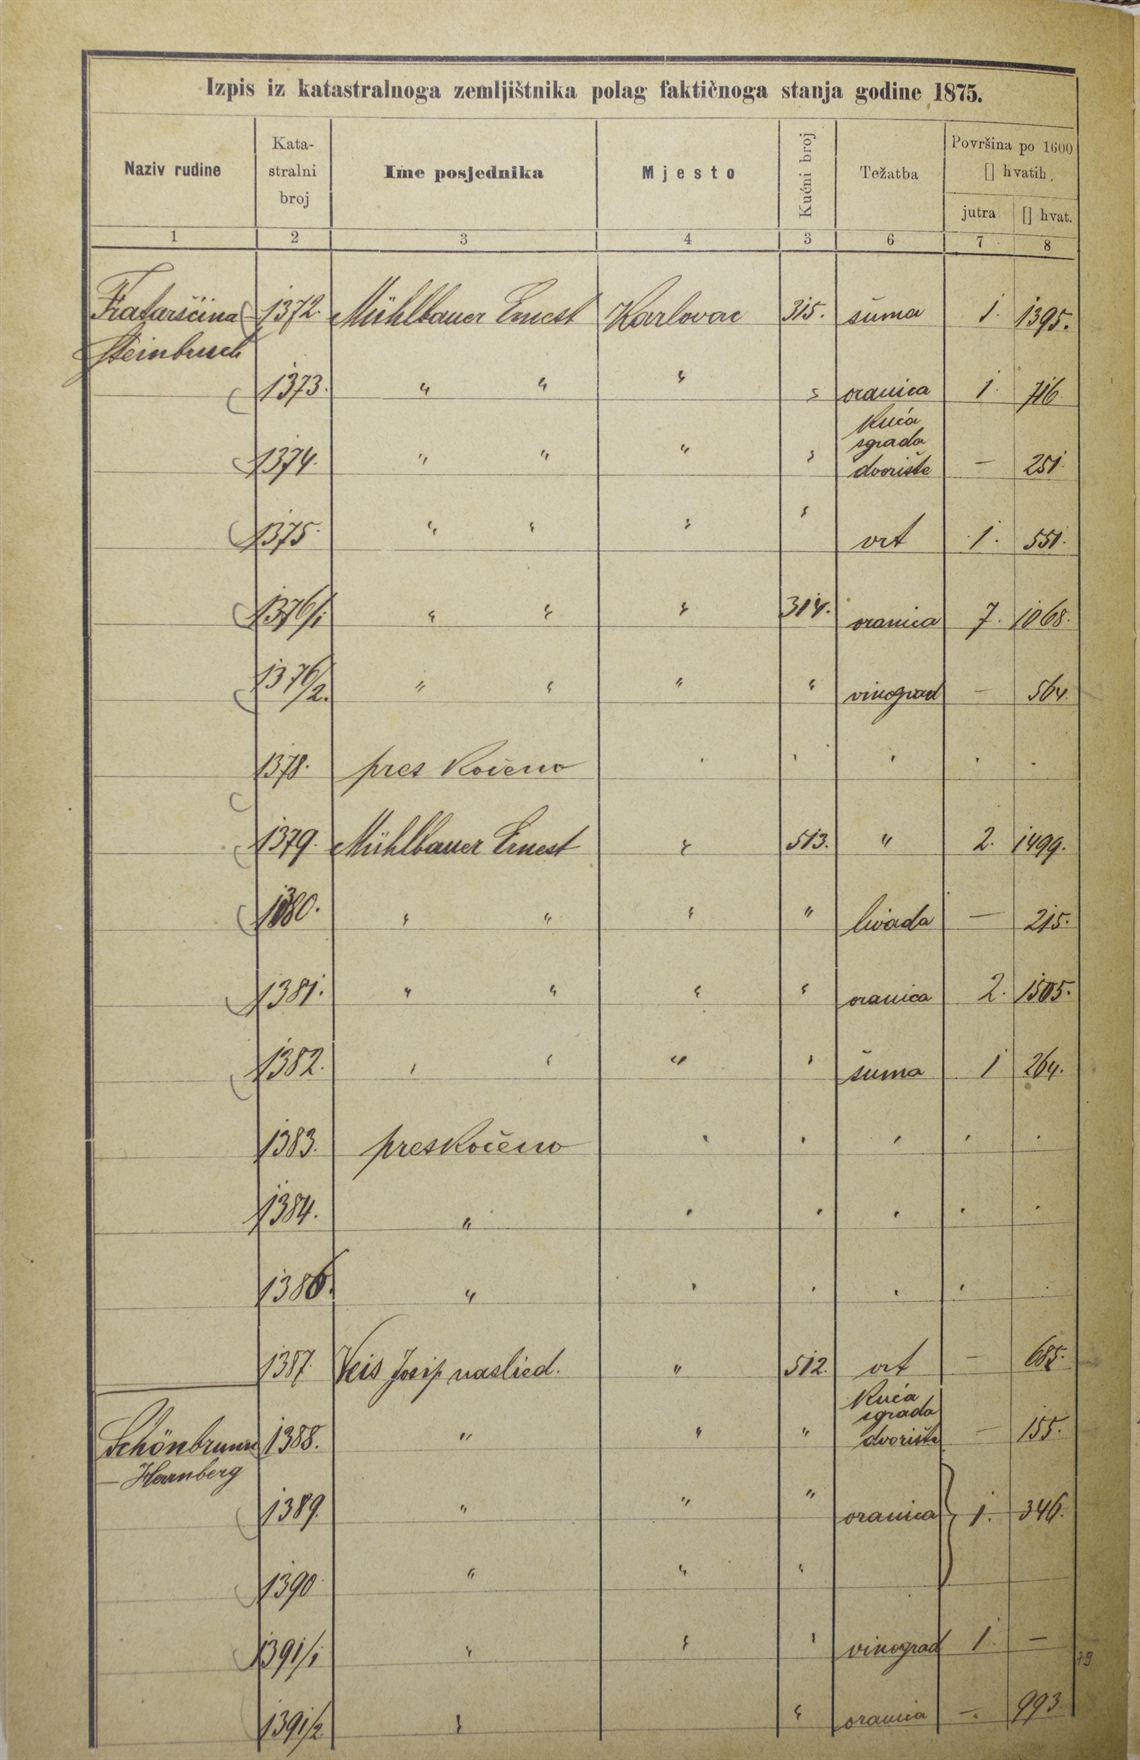 Izpis iz katastralnoga zemljištnika polag faktičnoga stanja godine 1875.
Naziv rudine Kata-stralni broj Ime posjednika Mjesto Kućni broj Težatba Površina po 1600 [] hvatih.
jutra [] hvat.
1 2 3 4 3 6 7 8
Fratarščina 1372. Mühlbauer Ernest Karlovac 315. šuma 1. 1395.
Steinbruch
1373. " " " " oranica 1. 716.
Kuća
sgrada
1374. " " " " dvorište — 251.
1375. " " " " vrt 1. 551.
1376/1 " " " 314. oranica 7. 1068.
1376/2. " " " " vinograd — 564.
1378. preskočeno . . . . .
1379. Mühlbauer Ernest " 513. " 2. 1499.
1380. " " " " livada — 215.
1381. " " " " oranica 2. 1505.
1382. " " " " šuma 1 264.
1383. preskočeno . . . . .
1384. " . . . . .
1386. " . . . .
1387. Veis Josip naslied. " 512. vrt — 685.
Kuća
sgrada
Schönbrunn 1388. " " " dvorište — 155.
— Hornberg
1389. " " " oranica } 1. 346.
1390 " " "
1391/1 " " " vinograd 1. —
79
1391/2 " " oranica —. 993